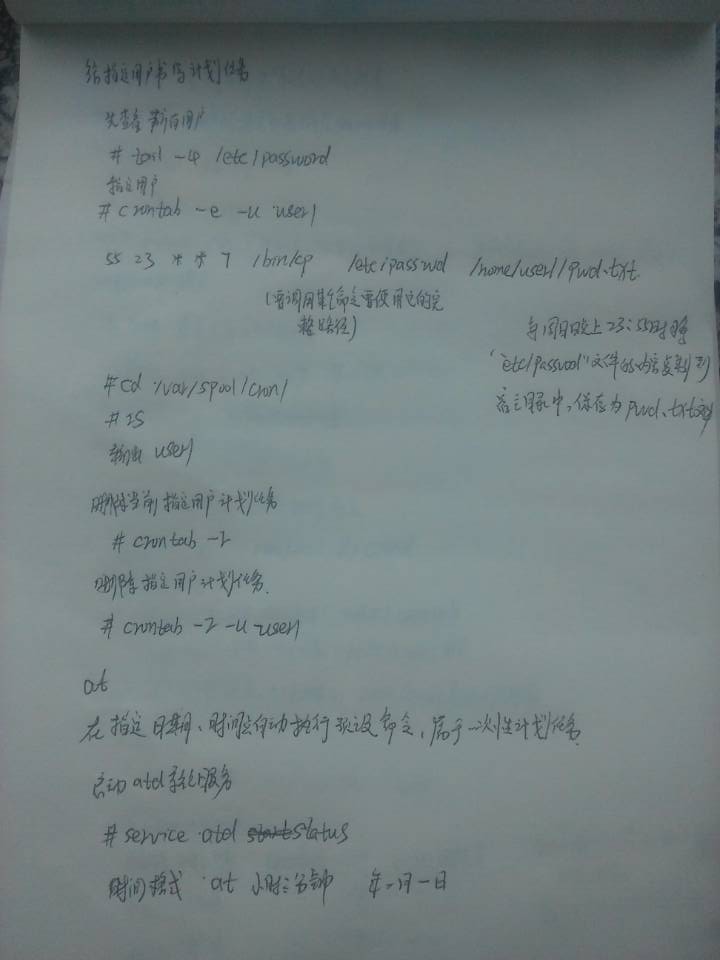 给指定用户书写计划任务
先查看都有用户
# tail -4 /etc/password
指定用户
# crontab -e -u user1
55 23 * * 7 /bin/cp /etc/passwd /home/user1/pwd.txt
(要调用某命令要使用它的完
整路径)
每周日晚上23:55时将
"etc/passwd"文件的内容复制到
宿主目录中,保存为pwd.txt
#cd /var/spool/cron/
# ls
输出 user1
删除当前指定用户计划任务
# crontab -r
删除指定用户计划任务.
# crontab -r -u user1
at
在指定日期、时间点自动执行预设命令,属于一次性计划任务
启动atd系统服务
# service atd status
时间格式 at 小时:分钟 年-月-日